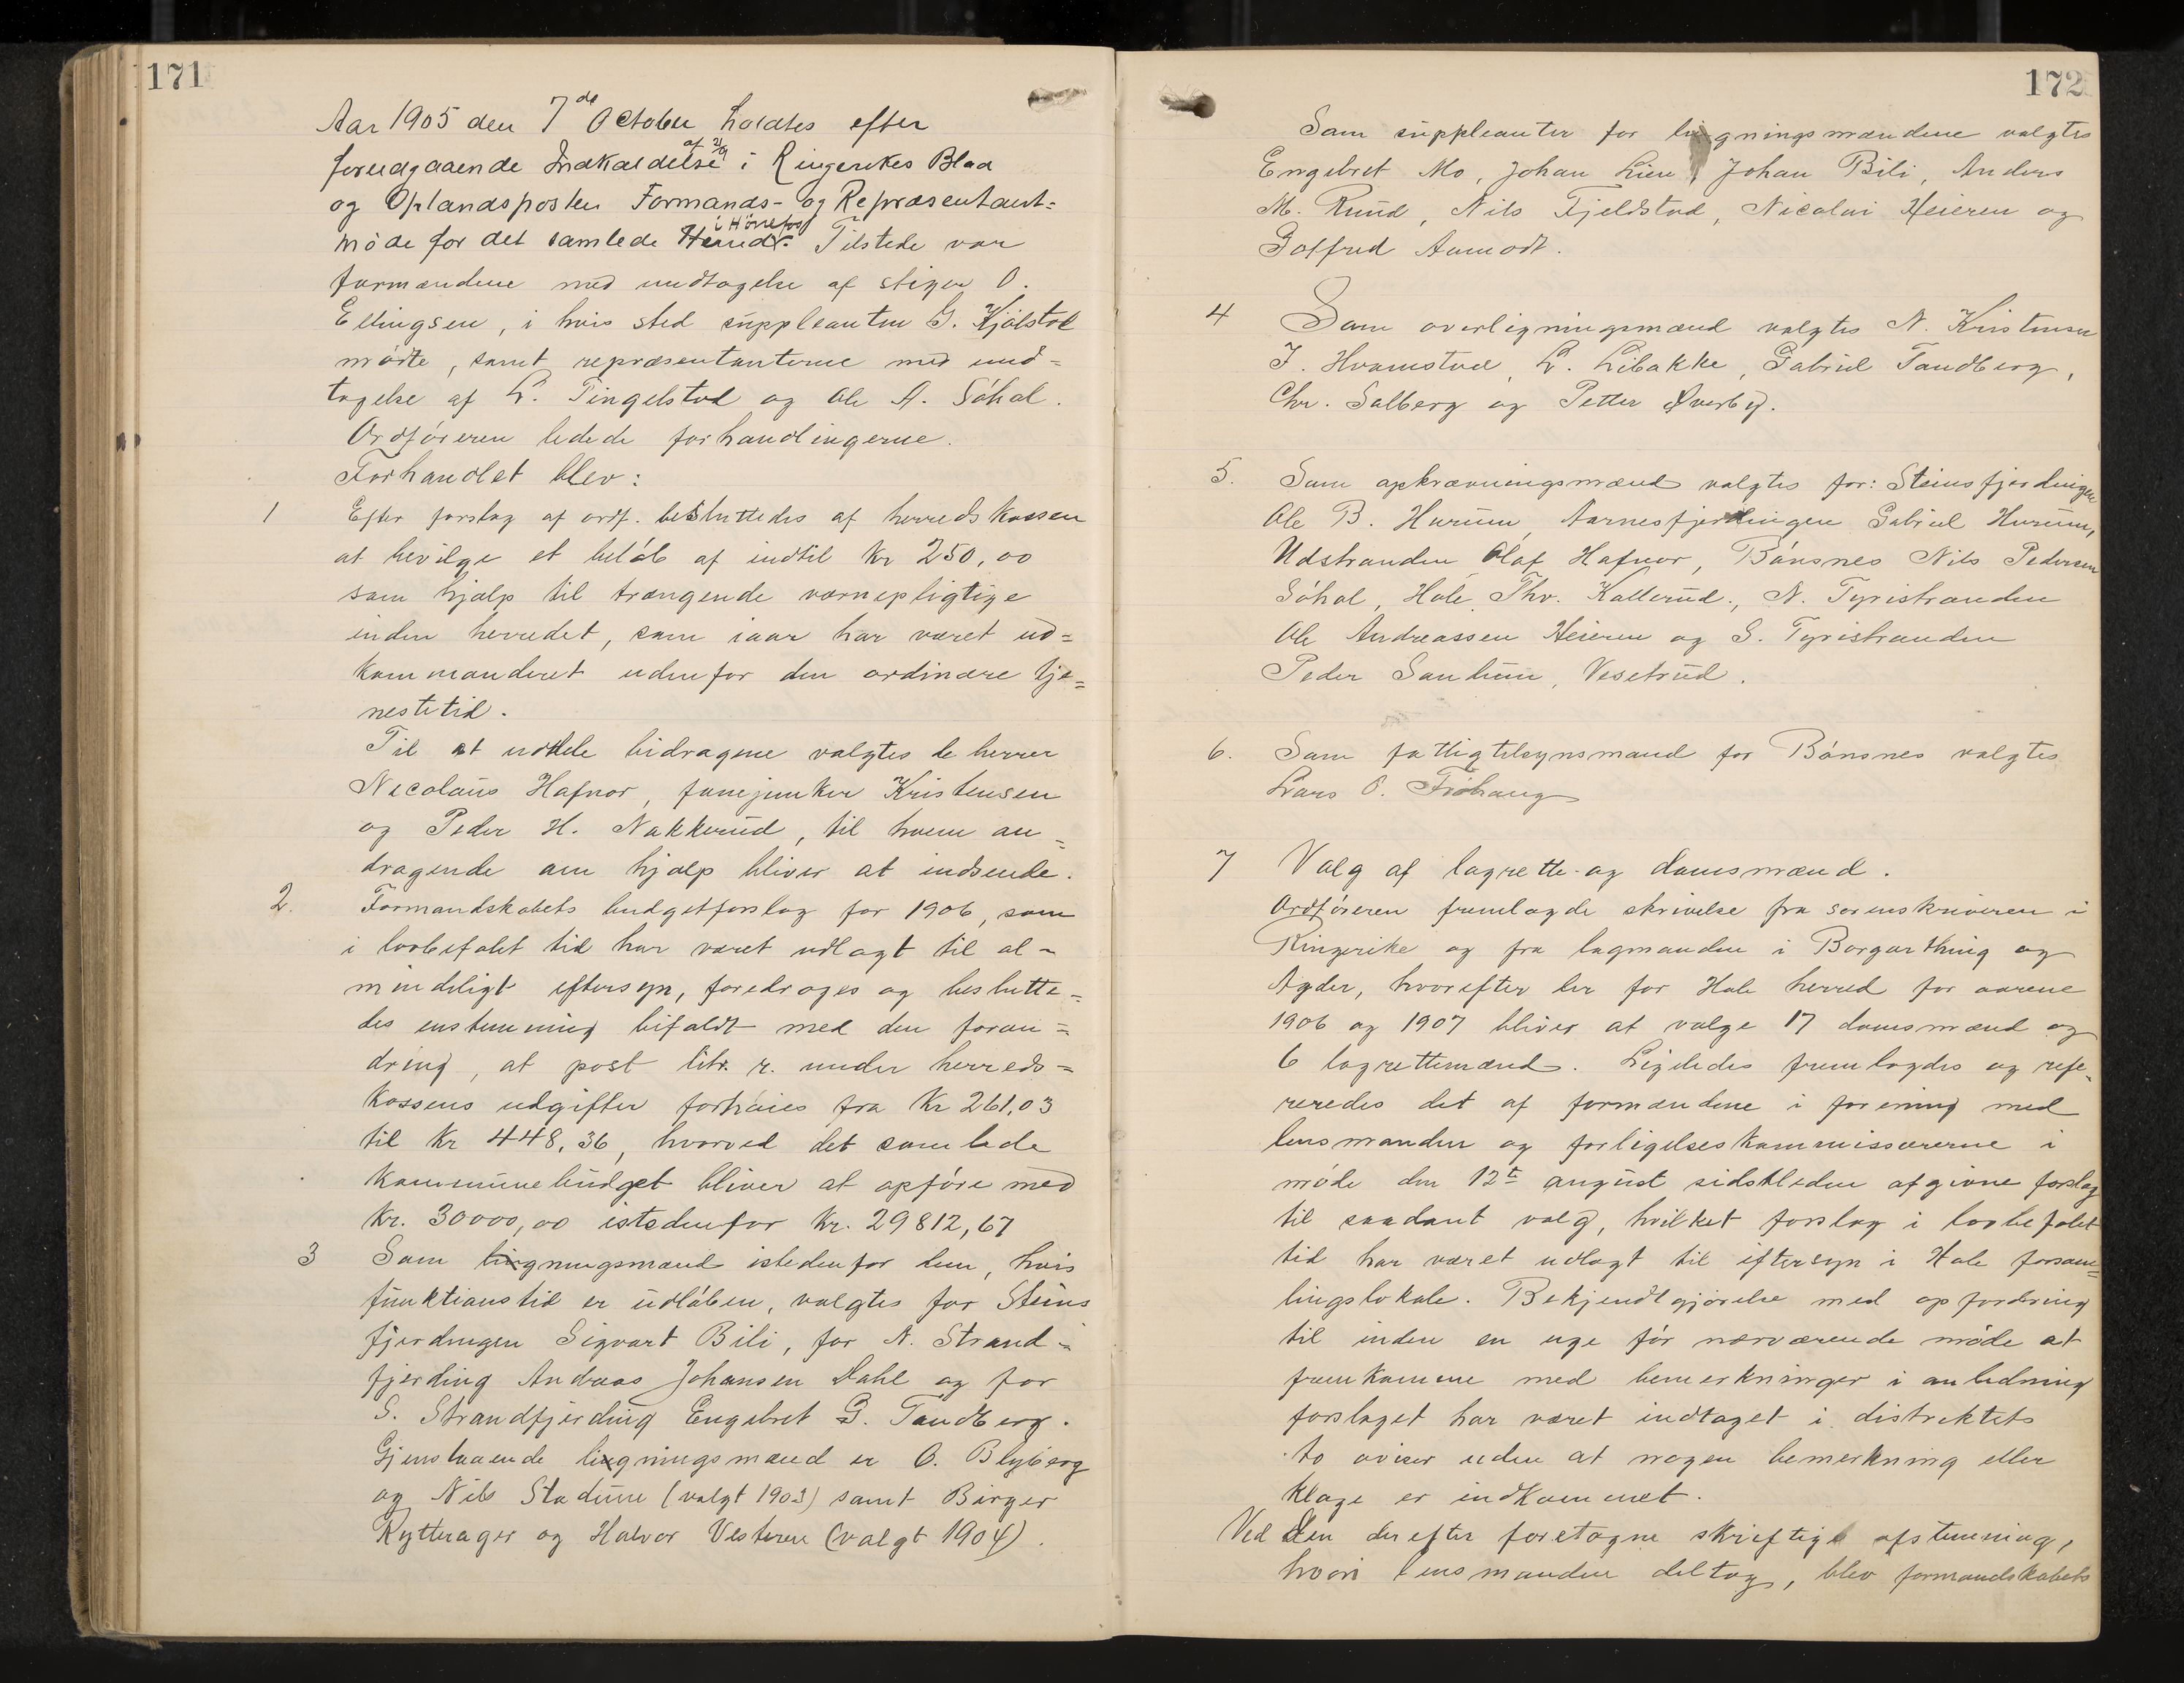 171
Aar 1905 den 7de October holdtes efter
forudgaaende Indkaldelse af 2/9 i Ringerikes Blad
og Oplandsposten Formands- og Repræsentant=
møde for det samlede Herred i Hønefos. Tilstede var
formændene med undtagelse af stiger O.
Ellingsen, i hvis sted suppleanten G. Kjølstad
mødte, samt repræsentanterne med und=
tagelse af L. Tingelstad og Ole A. Søhol.
Ordføreren ledede forhandlingerne.
Forhandlet blev:
1 Efter forslag af ordf. besluttedes af herredskassen
at bevilge et beløb af indtil Kr 250,00
som hjælp til trængende værnepligtige
inden herredet, som iaar har været ud=
kommanderet udenfor den ordinære tje=
nestetid.
Til at uddele bidragene valgtes de herrer
Nicolaus Hafnor, fanejunker Kristensen
og Peder H. Nakkerud, til hvem an=
dragende om hjælp bliver at indsende.
2. Formandskabets budgetforslag for 1906, som
i lovbefalet tid har været udlagt til al=
mindeligt eftersyn, foredroges og beslutte=
des enstemmig bifaldt med den foran=
dring, at post litr. r. under herreds=
kassens udgifter forhøies fra Kr 261,03
til Kr 448,36, hvorved det samlede
kommunebudget bliver at opføre med
Kr. 30000,00 istedenfor Kr. 29812,67
3 Som ligningsmænd istedenfor dem, hvis
funktionstid er udløben, valgtes for Steins
fjerdingen Sigvart Bili, for N. Strand=
fjerding Andreas Johansen Dahl og for
S. Strandfjerding Engebret G. Tandberg.
Gjenstaaende ligningsmænd er O. Blyberg
og Nils Stadum (valgt 1903) samt Birger
Rytterager og Halvor Vesteren (valgt 1904).
172
Som suppleanter for ligningsmændene valgtes
Engebret Mo, Johan Lien, Johan Bili, Anders
M. Rud, Nils Fjeldstad, Nicolai Heieren og
Gotfred Aamodt.
4 Som overligningsmænd valgtes N. Kristensen
J. Hvamstad, L. Libakke, Gabriel Tandberg,
Chr. Solberg og Petter Øverby.
5. Som opkrævningsmænd valgtes for: Steinsfjerdingen
Ole B. Hurum, Aarnesfjerdingen Gabriel Hurum,
Udstranden Olaf Hafnor, Bønsnes Nils Pedersen
Søhol, Hole Thv. Kallerud, N. Tyristranden
Ole Andreassen Heieren og S. Tyristranden
Peder Sanbum, Vesetrud.
6. Som fattigtilsynsmand for Bønsnes valgtes
Lars O. Frøhaug
7 Valg af lagrette- og domsmænd.
Ordføreren fremlagde skrivelse fra sorenskriveren i
Ringerike og fra lagmanden i Borgarthing og
Agder, hvorefter der for Hole herred for aarene
1906 og 1907 bliver at vælge 17 domsmænd og
6 lagrettemænd. Ligeledes fremlagdes og refe=
reredes det af formændene i forening med
lensmanden og forligelseskommissærerne i
møde den 12te august sidstleden afgivne forslag
til saadant valg, hvilket forslag i lovbefalet
tid har været udlagt til eftersyn i Hole forsam=
lingslokale. Bekjendtgjørelse med opfordring
til inden en uge før nærværende møde at
fremkomme med bemerkninger i anledning
forslaget har været indtaget i distriktets
to aviser uden at nogen bemerkning eller
klage er indkommet.
Ved den derefter foretagne skriftlige afstemning,
hvori lensmanden deltog, blev formandskabets